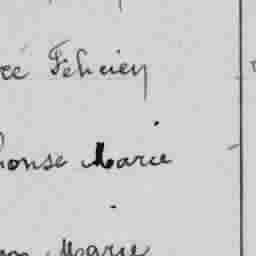 ée Felicien
honse Marie
Marie